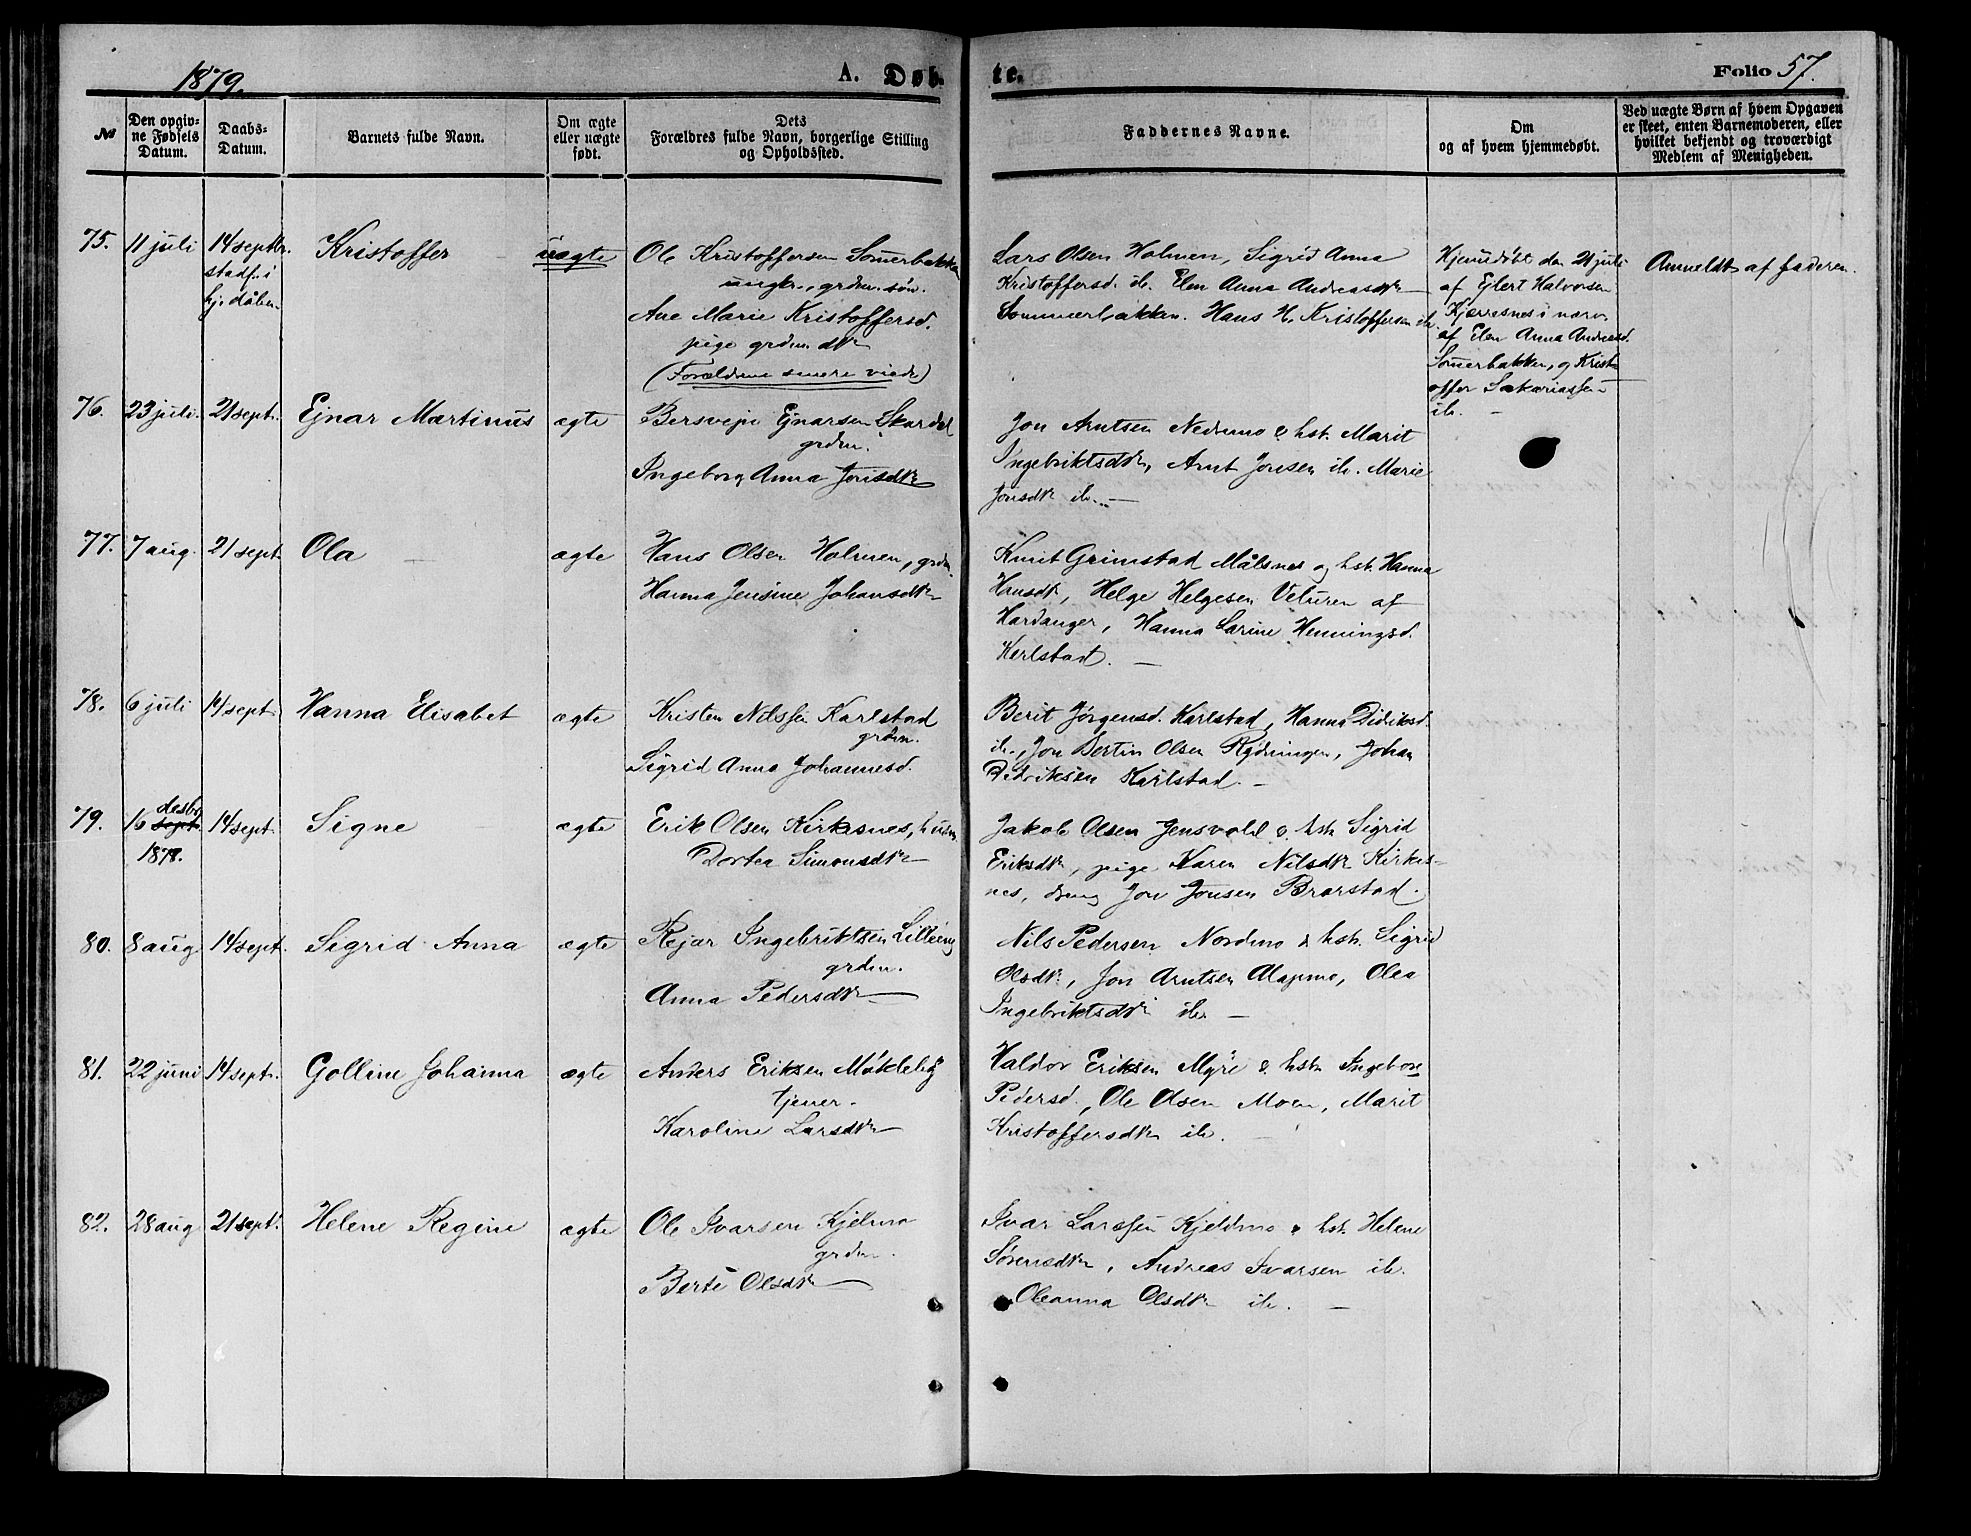 1879.
A. Døb-
te.
Folio 57.
№
Den opgiv-
ne Fødsels
Datum.
Daabs-
Datum.
Barnets fulde Navn.
Om ægte
eller uægte
født.
Dets
Forældres fulde Navn, borgerlige Stilling
og Opholdssted.
Faddernes Navne.
Om
og af hvem hjemmedøbt.
Ved uægte Børn af hvem Opgaven
er skeet, enten Barnemoderen, eller
hvilket bekjendt og troværdigt
Medlem af Menigheden.
75. 11 juli 14 septbr. Kristoffer uægte Ole Kristoffersen Somerbakken
stadf. i
hj. dåben
ungk., grdm. søn.
Ane Marie Kristoffersd.
pige grdm. dtr
(Forældrene senere viede)
Lars Olsen Holmen, Sigrid Anna
Kristoffersd. ib. Elen Anna Andreasdtr
Sommerbakken. Hans H. Kristoffersen ib.
Hjemdøbt den 21 juli
af Ejlert Halvorsen
Kjerresnes i nærv.
af Elen Anna Andreasd.
Somerbakken, og Krist-
offer Sakariassen
ib. —
Anmeldt af faderen.
76. 23 juli. 21 sept. Ejnar Martinus ægte Bersvejn Ejnarsen Skardal
grdm.
Ingeborg Anna Jonsdtr
Jon Arntsen Nedremo & hst. Marit
Ingebriktsdtr, Arnt Jonsen ib. Marie
Jonsdtr ib. —
77. 7 aug. 21 sept. Ola — ægte Hans Olsen Holmen, grdm.
Hanna Jensine Johansdtr
Knut Grimstad Målsnes og hst. Hanna
Hansdtr, Helge Helgesen Veturen af
Hardanger, Hanna Larine Henningsd.
Kerlstad. —
78. 6 juli 14 sept. Hanna Elisabet ægte Kristen Nilssen Karlstad
grdm.
Sigrid Anna Johannesd.
Berit Jørgensd. Karlstad, Hanna Didriksd.
ib., Jon Bertin Olsen Rydningen, Johan
Didriksen Karlstad. —
79. 16 desbr sept. 14 sept. Signe — ægte Erik Olsen Kirkesnes, husm.
1878.
Dortea Simonsdtr
Jakob Olsen Jensvold & hst. Sigrid
Eriksdtr, pige Karen Nilsdtr Kirkes-
nes, dreng Jon Jonsen Brarstad.
80. 8 aug 14 sept. Sigrid Anna ægte Rejar Ingebriktsen Lilleeng
grdm.
Anna Pedersdtr
Nils Pedersen Nordmo & hst. Sigrid
Olsdtr, Jon Arntsen Alapmo, Olea
Ingebriktsdtr ib. —
81. 22 juni 14 sept. Golline Johanna ægte Anders Eriksen
tjener.
Karoline Larsdtr
Haldor Eriksen Myre & hst. Ingebor
Pedersd., Ole Olsen Moen, Marit
Kristoffersdtr ib. —
82. 28 aug 21 sept. Helene Regine ægte Ole Ivarsen Kjelmo
grdm.
Berte Olsdtr
Ivar Larssen Kjeldmo & hst. Helene
Sørensdtr, Andreas Ivarsen ib.
Oleanna Olsdtr ib. —